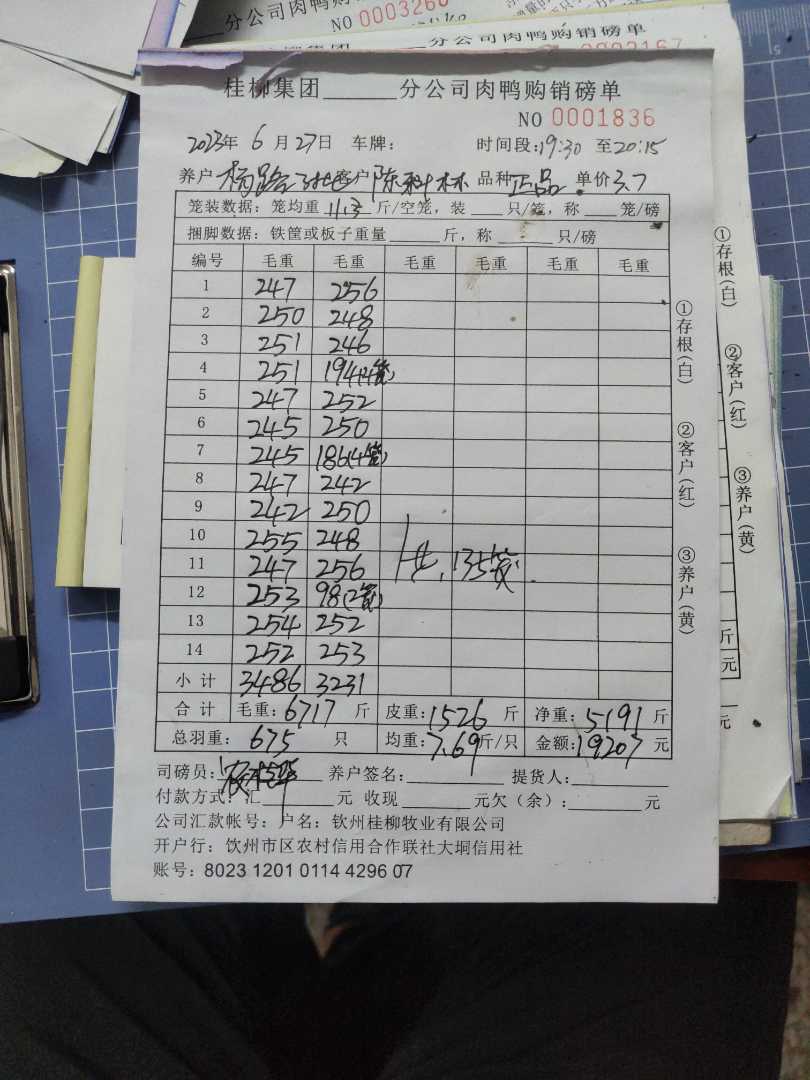 分公司肉鸭购销磅单
NO 0003260
分公司肉鸭购销磅单
0003167
桂柳集团______分公司肉鸭购销磅单
NO 0001836
2023年 6 月 27日 车牌: 时间段:19:30 至20:15
养户 客户 陈 林 品种 正品 单价 3.7
笼装数据: 笼均重 11.3 斤/空笼, 装 ___ 只/笼, 称 ___ 笼/磅
捆脚数据: 铁筐或板子重量 ______ 斤, 称 ____ 只/磅
编号 毛重 毛重 毛重 毛重 毛重 毛重
1 247 256
2 250 248
3 251 246
4 251 194(4笼)
5 247 252
6 245 250
7 245 186(4笼)
8 247 242
9 242 250
10 255 248
11 247 256
12 253 98(2笼)
13 254 252
14 252 253
共, 135笼.
小计 3486 3231
合计 毛重: 6717 斤 皮重: 1526 斤 净重: 5191 斤
总羽重: 675 只 均重: 7.69 斤/只 金额: 19207 元
司磅员: 养户签名: 提货人:
付款方式: 汇______元 收现______元欠(余): ______元
公司汇款帐号: 户名: 钦州桂柳牧业有限公司
开户行: 饮州市区农村信用合作联社大垌信用社
账号: 8023 1201 0114 4296 07
①存根(白)
②客户(红)
③养户(黄)
①存根(白)
②客户(红)
③养户(黄)
斤
元
元